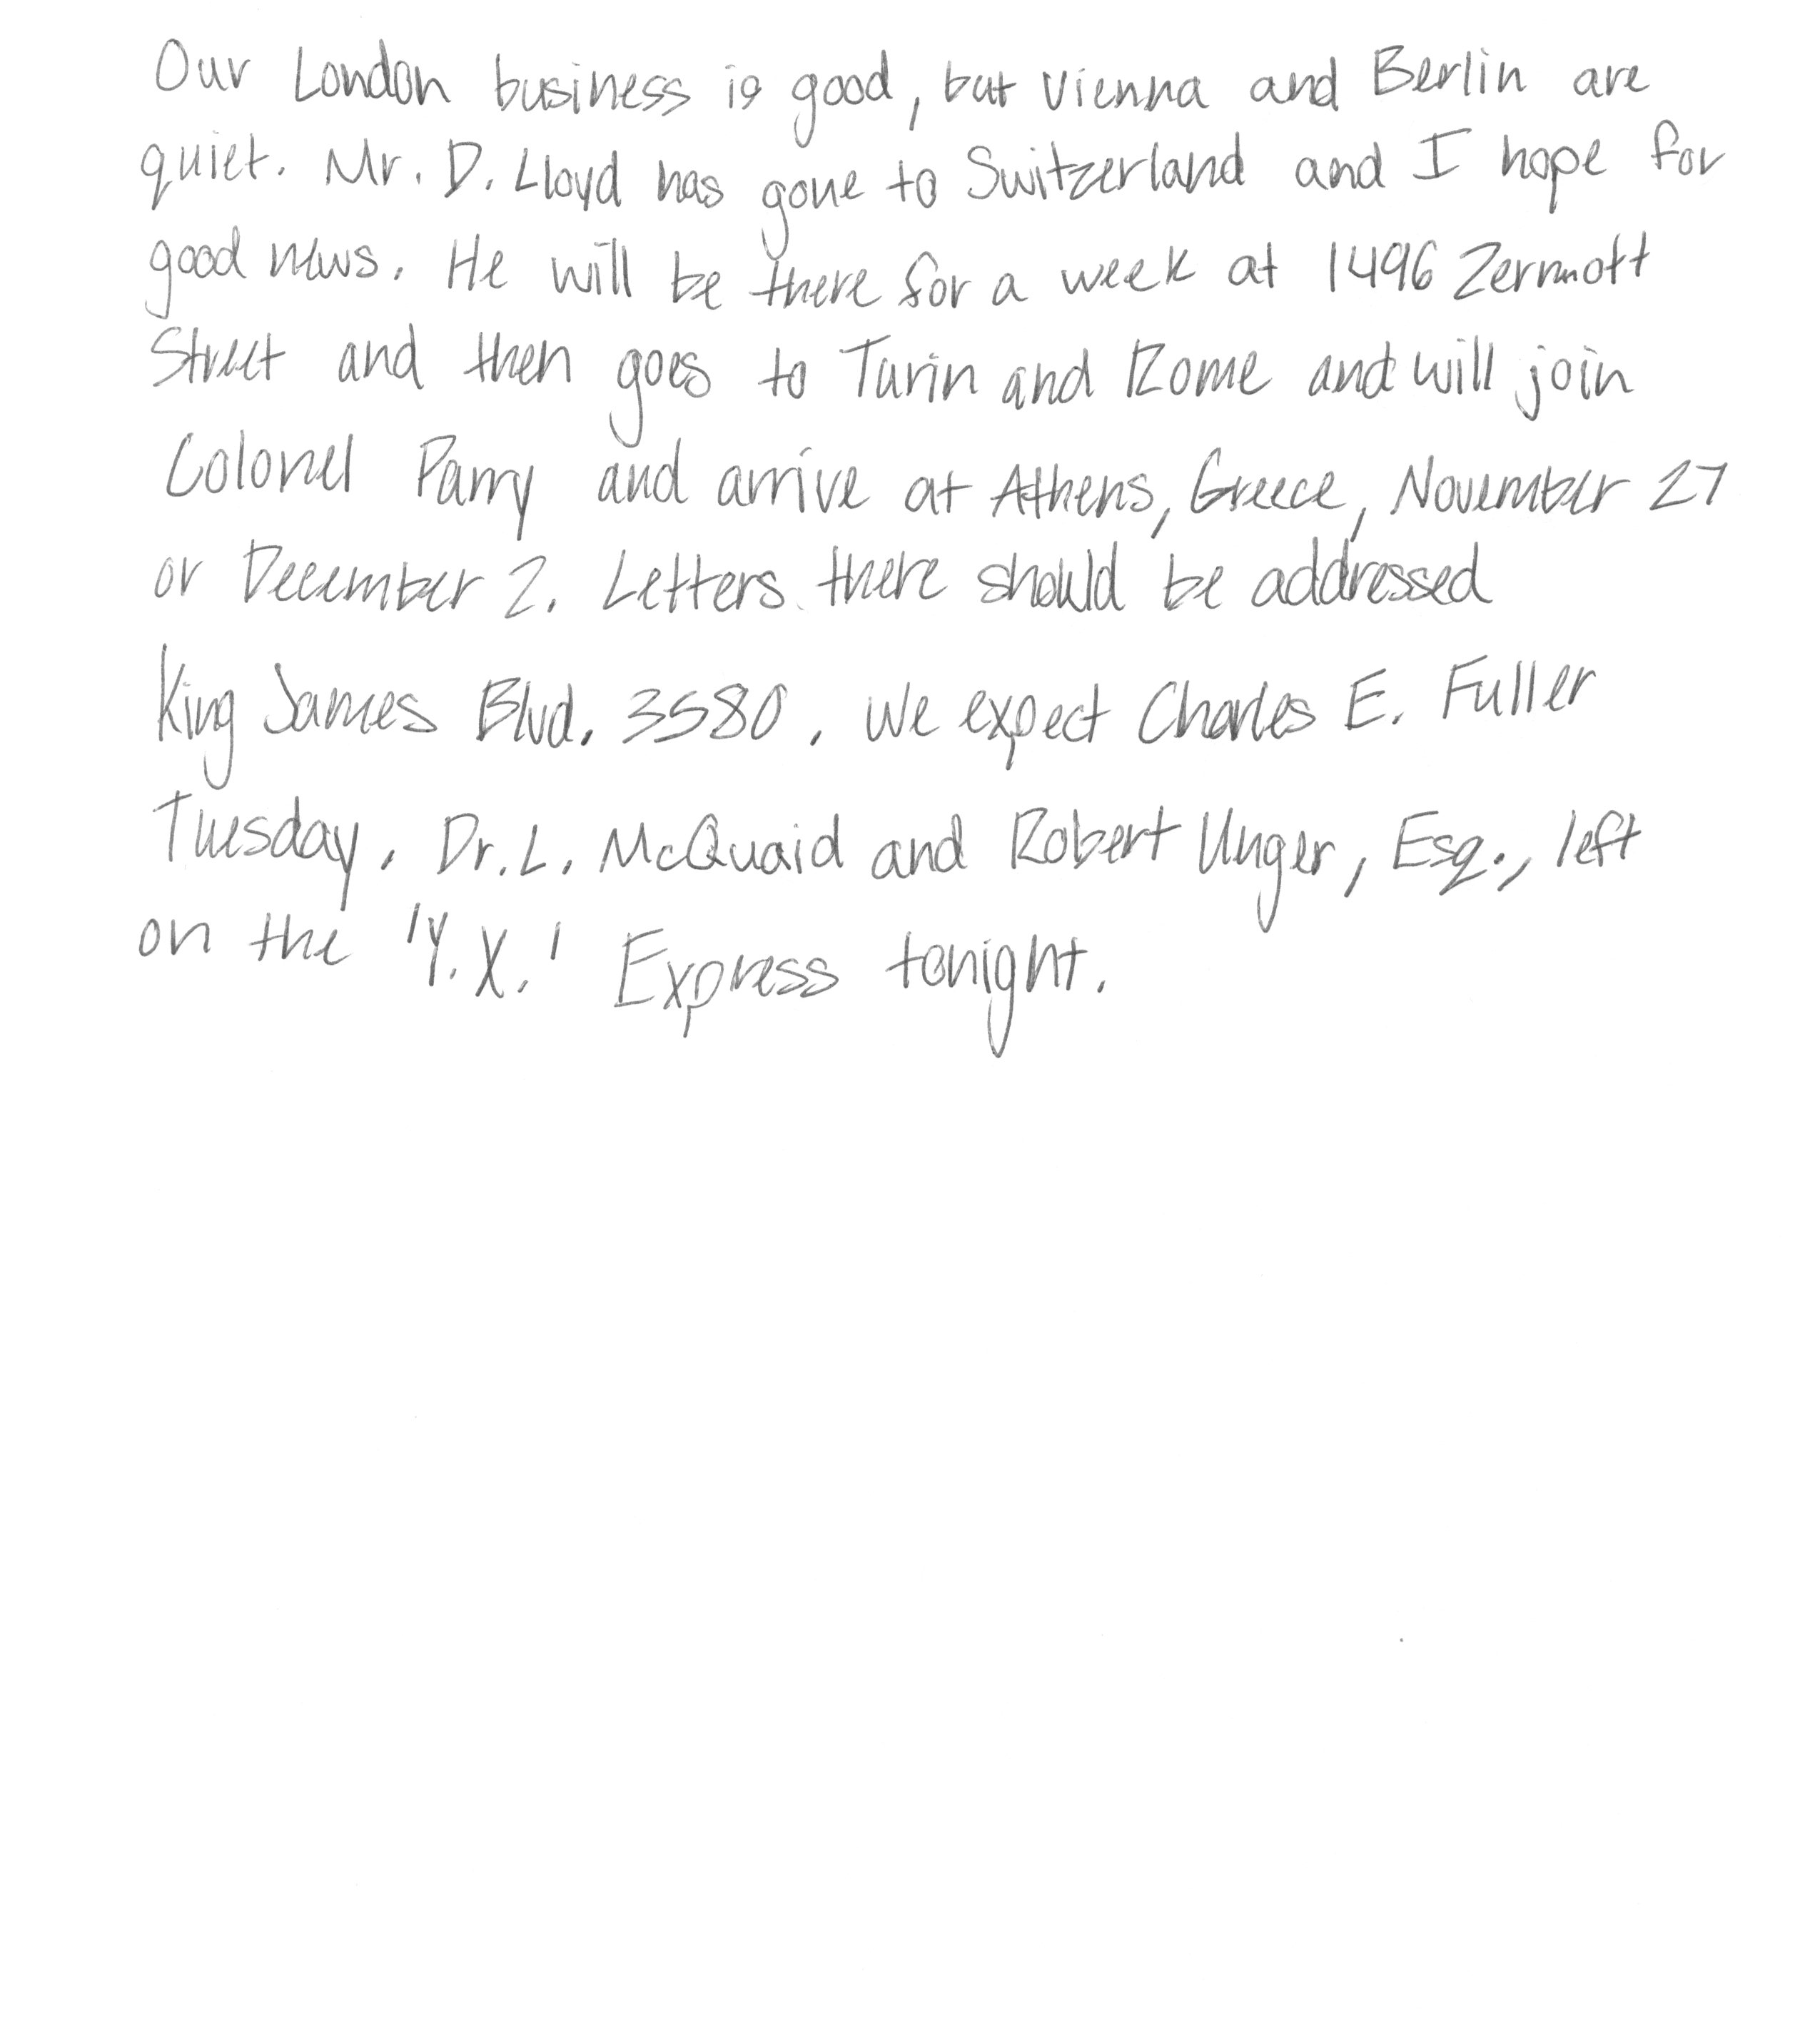 Our London business is good, but Vienna and Berlin are
quiet. Mr. D. Lloyd has gone to Switzerland and I hope for
good news. He will be there for a week at 1496 Zermott
Street and then goes to Turin and Rome and will join
Colonel Parry and arrive at Athens, Greece, November 27
or December 2. Letters there should be addressed
King James Blvd. 3580. We expect Charles E. Fuller
Tuesday. Dr. L. McQuaid and Robert Unger, Esq., left
on the 'Y.X.' Express tonight.